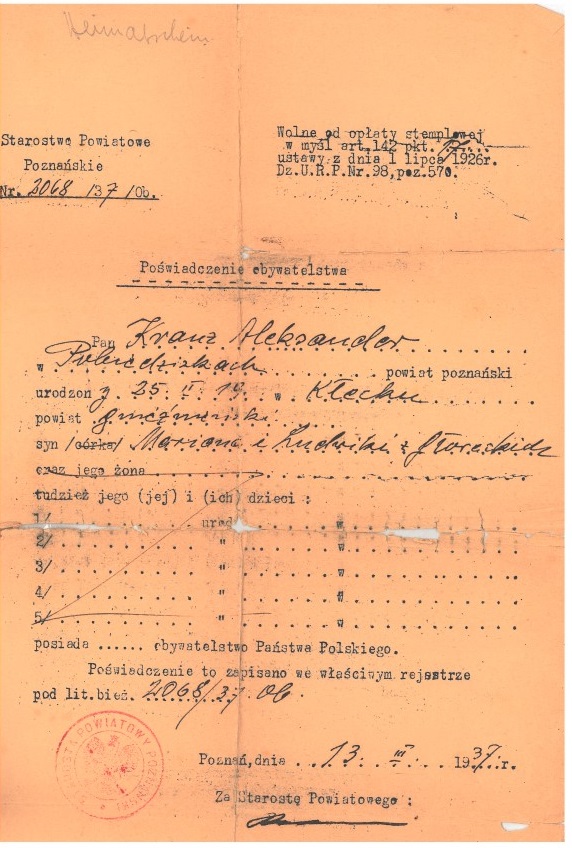 Heimatschein
Starostwo Powiatowe
Poznańskie
Nr. 2068 /37/Ob.
Wolne od opłaty stemplowej
w myśl art.142 pkt.
ustawy z dnia 1 lipca 1926r.
Dz.U.R.P.Nr.98,poz.570.
Poświadczenie obywatelstwa
Pan Kranz Aleksander
w Pobiedziskach powiat poznański
urodzony 25 II 19 w Kłecku
powiat gnieźnieński
syn /córka/ Mariana i Ludwiki z
oraz jego żona
tudzież jego (jej) i (ich) dzieci :
1/ urodz. w
2/ " w
3/ " w
4/ " w
5/ " w
posiada ...... obywatelstwo Państwa Polskiego.
Poświadczenie to zapisano we właściwym rejestrze
pod lit.bież. 2068/37 Ob.
STAROSTA POWIATOWY POZNAŃSKI
Poznań,dnia 13 III 1937.r.
Za Starostę Powiatowego :